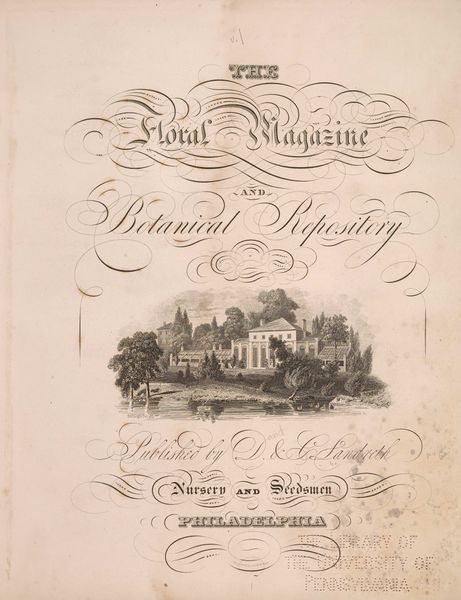 v.1
THE
Floral Magazine
AND
Botanical Repository
Published by D. & C. Landreth
Nursery AND Seedsmen
PHILADELPHIA
THE LIBRARY OF
THE UNIVERSITY OF
PENNSYLVANIA